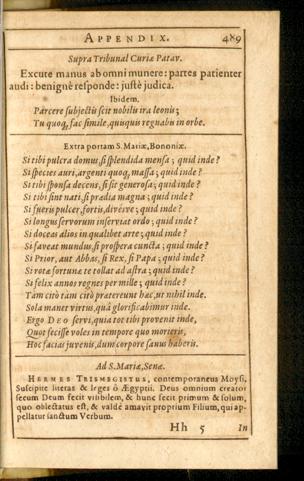 APPENDIX. 489
Supra Tribunal Curiæ Patav.
Excute manus ab omni munere: partes patienter
audi: benignè responde: justè judica.
Ibidem.
Parcere subjectis scit nobilis ira leonis;
Tu quoq, fac simile, quisquis regnabis in orbe.
Extra portam S. Mariæ, Bononiæ.
Si tibi pulcra domus, si splendida mensa; quid inde?
Si species auri, argenti quoq, massa; quid inde?
Si tibi sponsa decens, si sit generosa; quid inde?
Si tibi sint nati, si prædia magna; quid inde?
Si fueris pulcer, fortis, divésve; quid inde?
Si longus servorum inserviat ordo; quid inde?
Si doceas alios in qualibet arte; quid inde?
Si faveat mundus, si prospera cuncta; quid inde?
Si Prior, aut Abbas, si Rex, si Papa; quid inde?
Si rotæ fortuna te tollat ad astra; quid inde?
Si felix annos regnes per mille; quid inde?
Tam citò tam citò prætereunt hæc, ut nihil inde.
Sola manet virtus, quâ glorificabimur inde.
Ergo DEO servi, quia tot tibi provenit inde,
Quot fecisse voles in tempore quo morieris,
Hoc facias juvenis, dum corpore sanus haberis.
Ad S. Mariæ, Senæ.
HERMES TRISMEGISTUS, contemporaneus Moysi,
Suscipite literas & leges ô Ægyptii. Deus omnium creator
secum Deum fecit visibilem, & hunc fecit primum & solum,
quo oblectatus est, & valdè amavit proprium Filium, qui ap-
pellatur sanctum Verbum.
Hh 5 In